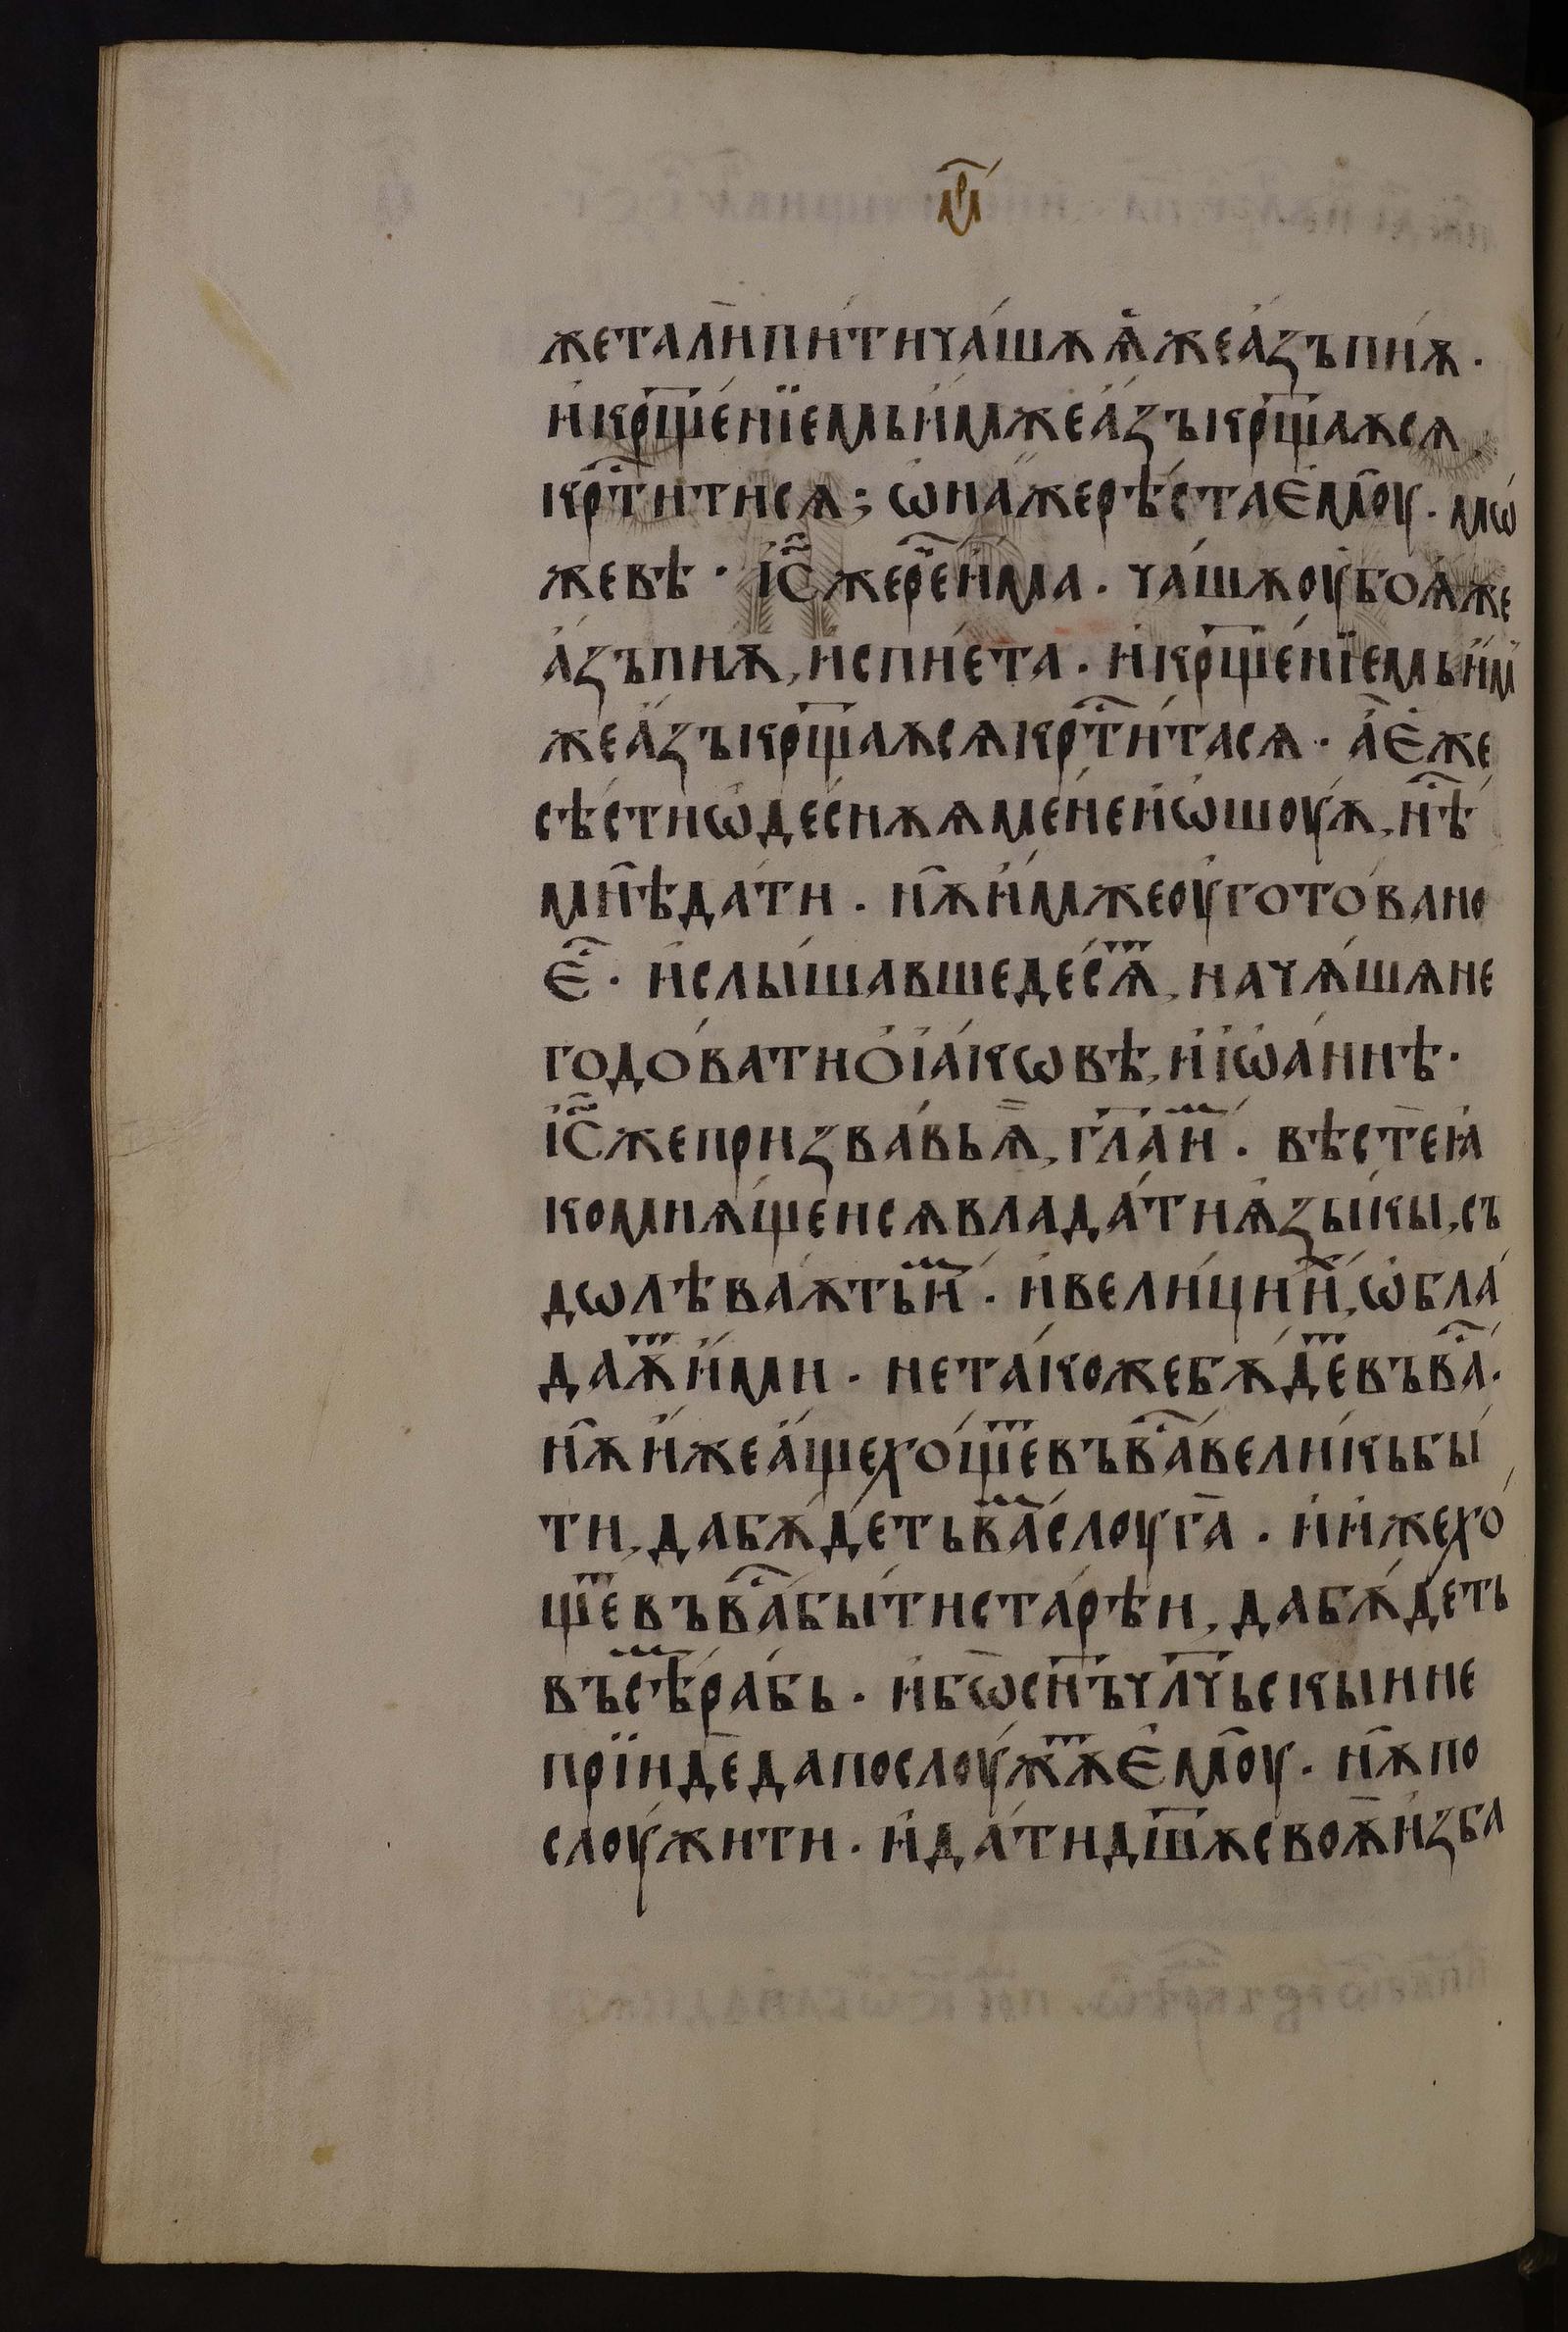 м҃р
жетали̑пи́тича́шѫ ѧ҆́жеа҆́зъпиѫ̀ ·
и҆кр҃ще́нїемьи҆́мжеа҆́зъкр҃щаѫсѧ
кр҃ти́тисѧ ; ѡ҆на́жерѣ́стае҆мꙋ̑ · мѡ́
жевѣ · і҆с҃жерече҆́има · ча́шѫоу҆боѫ҆́же
а҆́зъпиѫ, и҆спі́ета · и҆кр҃ще́нїемьи҆́м
жеа҆́зъкр҃щаѫсѧкр҃ти́тасѧ · а҆̀е҆́же
сѣ́стиѡ҆десни́ѫѧмененеи҆ѡ҆шоуѫ, нѣ҃
мнѣ̑да́ти · нѫ̑и҆́мжеоу҆гото́вано
е҆҃ · и҆слы́шавшедесѧ҃, нача́шѧне
годо́ватиѻ҆і҆а́кѡвѣ, и҆і҆ѡа́ннѣ ·
і҆с҃жепризва́вьѧ҆̀, гл҃аи҆́м · вѣстеꙗ҆́
комнѧ́щеисѧвлада́тиѧ҆зы́кы, съ
дѡлѣва́ѫтьи҆́м · и҆вели́циии҆́х, ѡ҆бла́
даѫ҃и҆́ми · нета́кожебѫ́де҃въва҃ ·
нѫ̑и҆́жеа҆́щехо́ще҃въва҃вели́кьбы́
ти, дабѫ́детьва҃слоуга̀ · и҆и҆́жехо́
ще҃въва҃бы́тиста́рѣи, дабѫ́деть
въсѣ҃ра́бь · и҆бѡсн҃ъчл҃чьскыине
прїи́дедапослоу́жѫ҃е҆мꙋ̑ · нѫ̑по
слоу́жити · и҆да́тидш҃ѫсвоѫ̀и҆зба